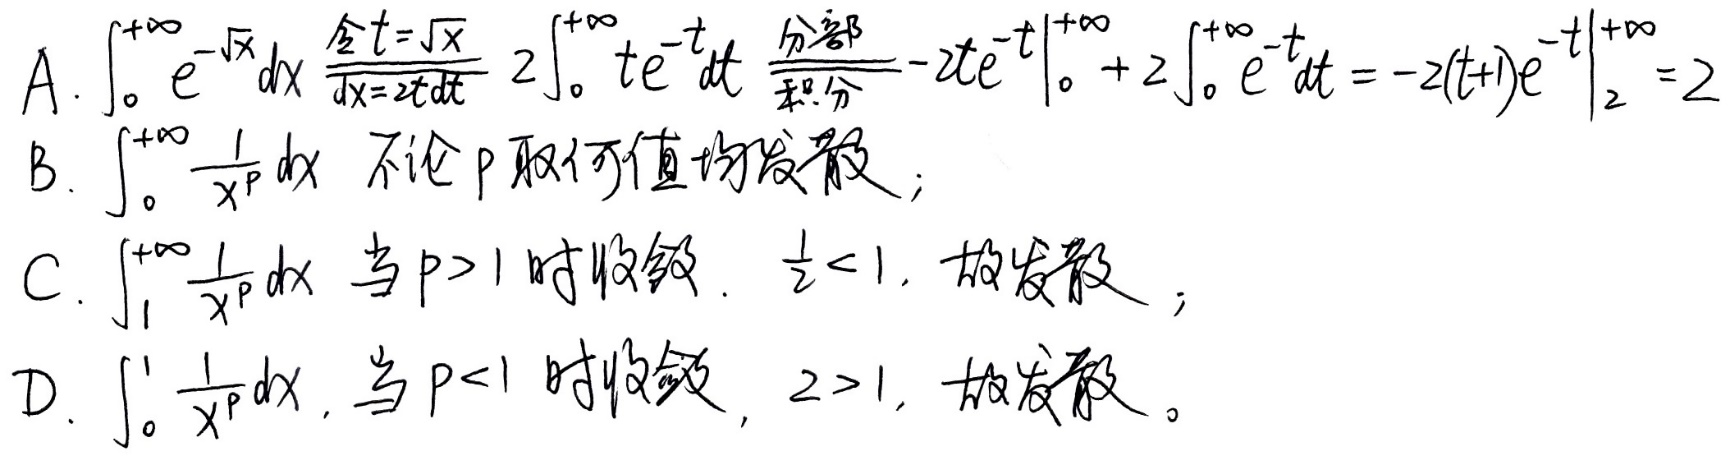 A. ∫₀^{+∞} e^{-√x} dx \xlongequal[dx=2tdt]{令t=√x} 2∫₀^{+∞} te^{-t}dt \xlongequal[积分]{分部} -2te^{-t}|₀^{+∞} + 2∫₀^{+∞} e^{-t}dt = -2(t+1)e^{-t}|₂^{+∞} = 2
B. ∫₀^{+∞} \frac{1}{x^p} dx 不论p取何值均发散;
C. ∫₁^{+∞} \frac{1}{x^p} dx 当p>1时收敛. \frac{1}{2}<1, 故发散;
D. ∫₀^1 \frac{1}{x^p} dx, 当p<1时收敛, 2>1, 故发散。